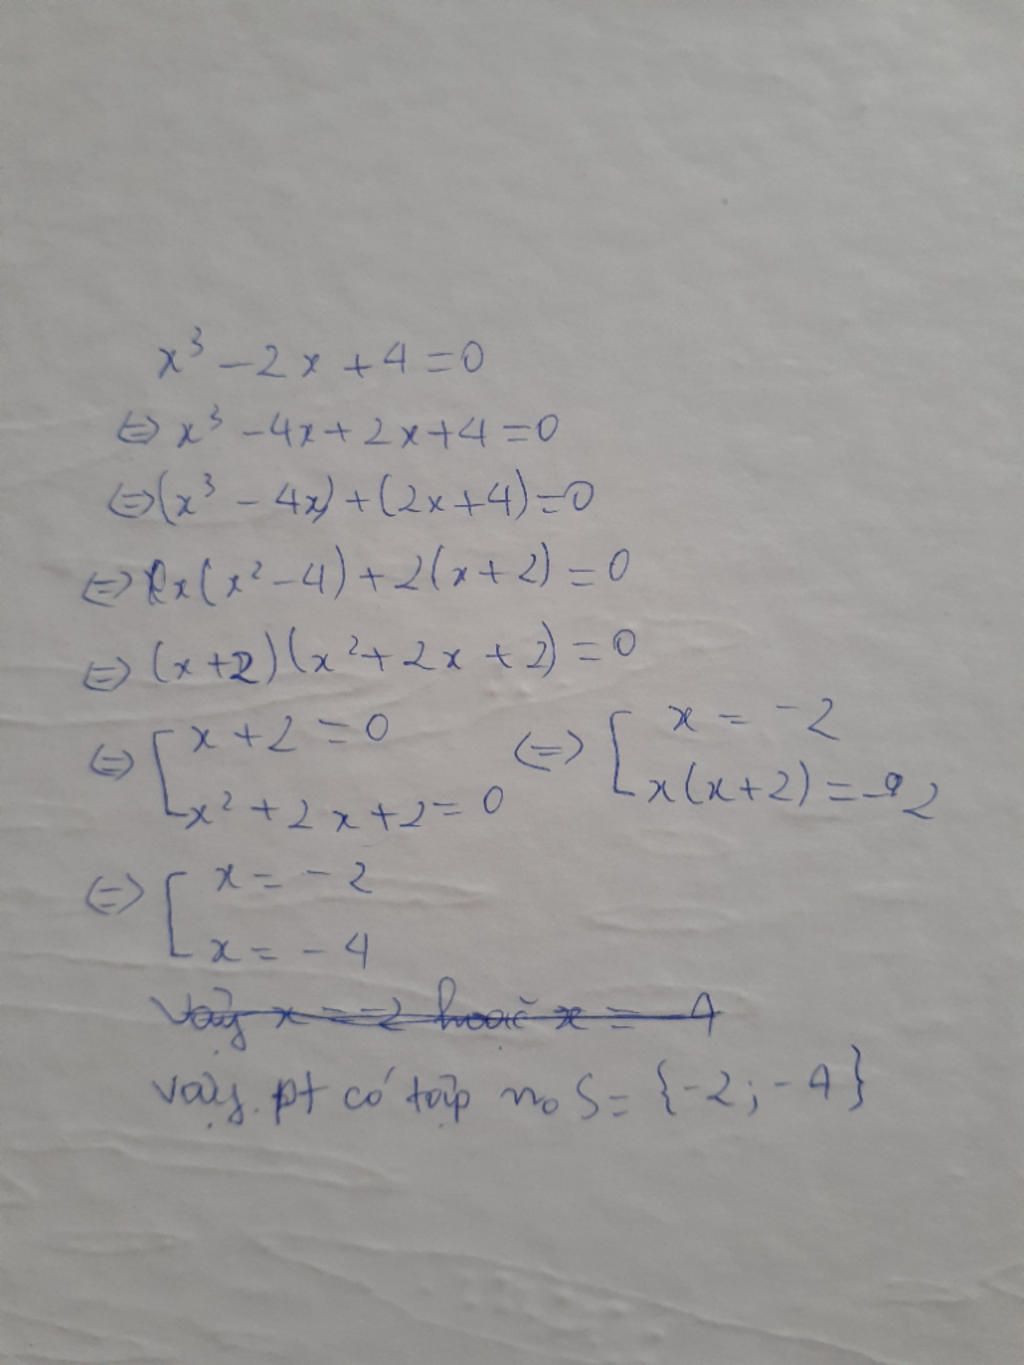 x³ - 2x + 4 = 0
⇔ x³ - 4x + 2x + 4 = 0
⇔ (x³ - 4x) + (2x + 4) = 0
⇔ x(x² - 4) + 2(x + 2) = 0
⇔ (x + 2)(x² + 2x + 2) = 0
⇔ [ x + 2 = 0 ⇔ [ x = -2
x² + 2x + 2 = 0 x(x + 2) = -2
⇔ [ x = -2
x = -4
Vậy x = -2 hoặc x = -4
Vậy pt có tập no S = {-2; -4}